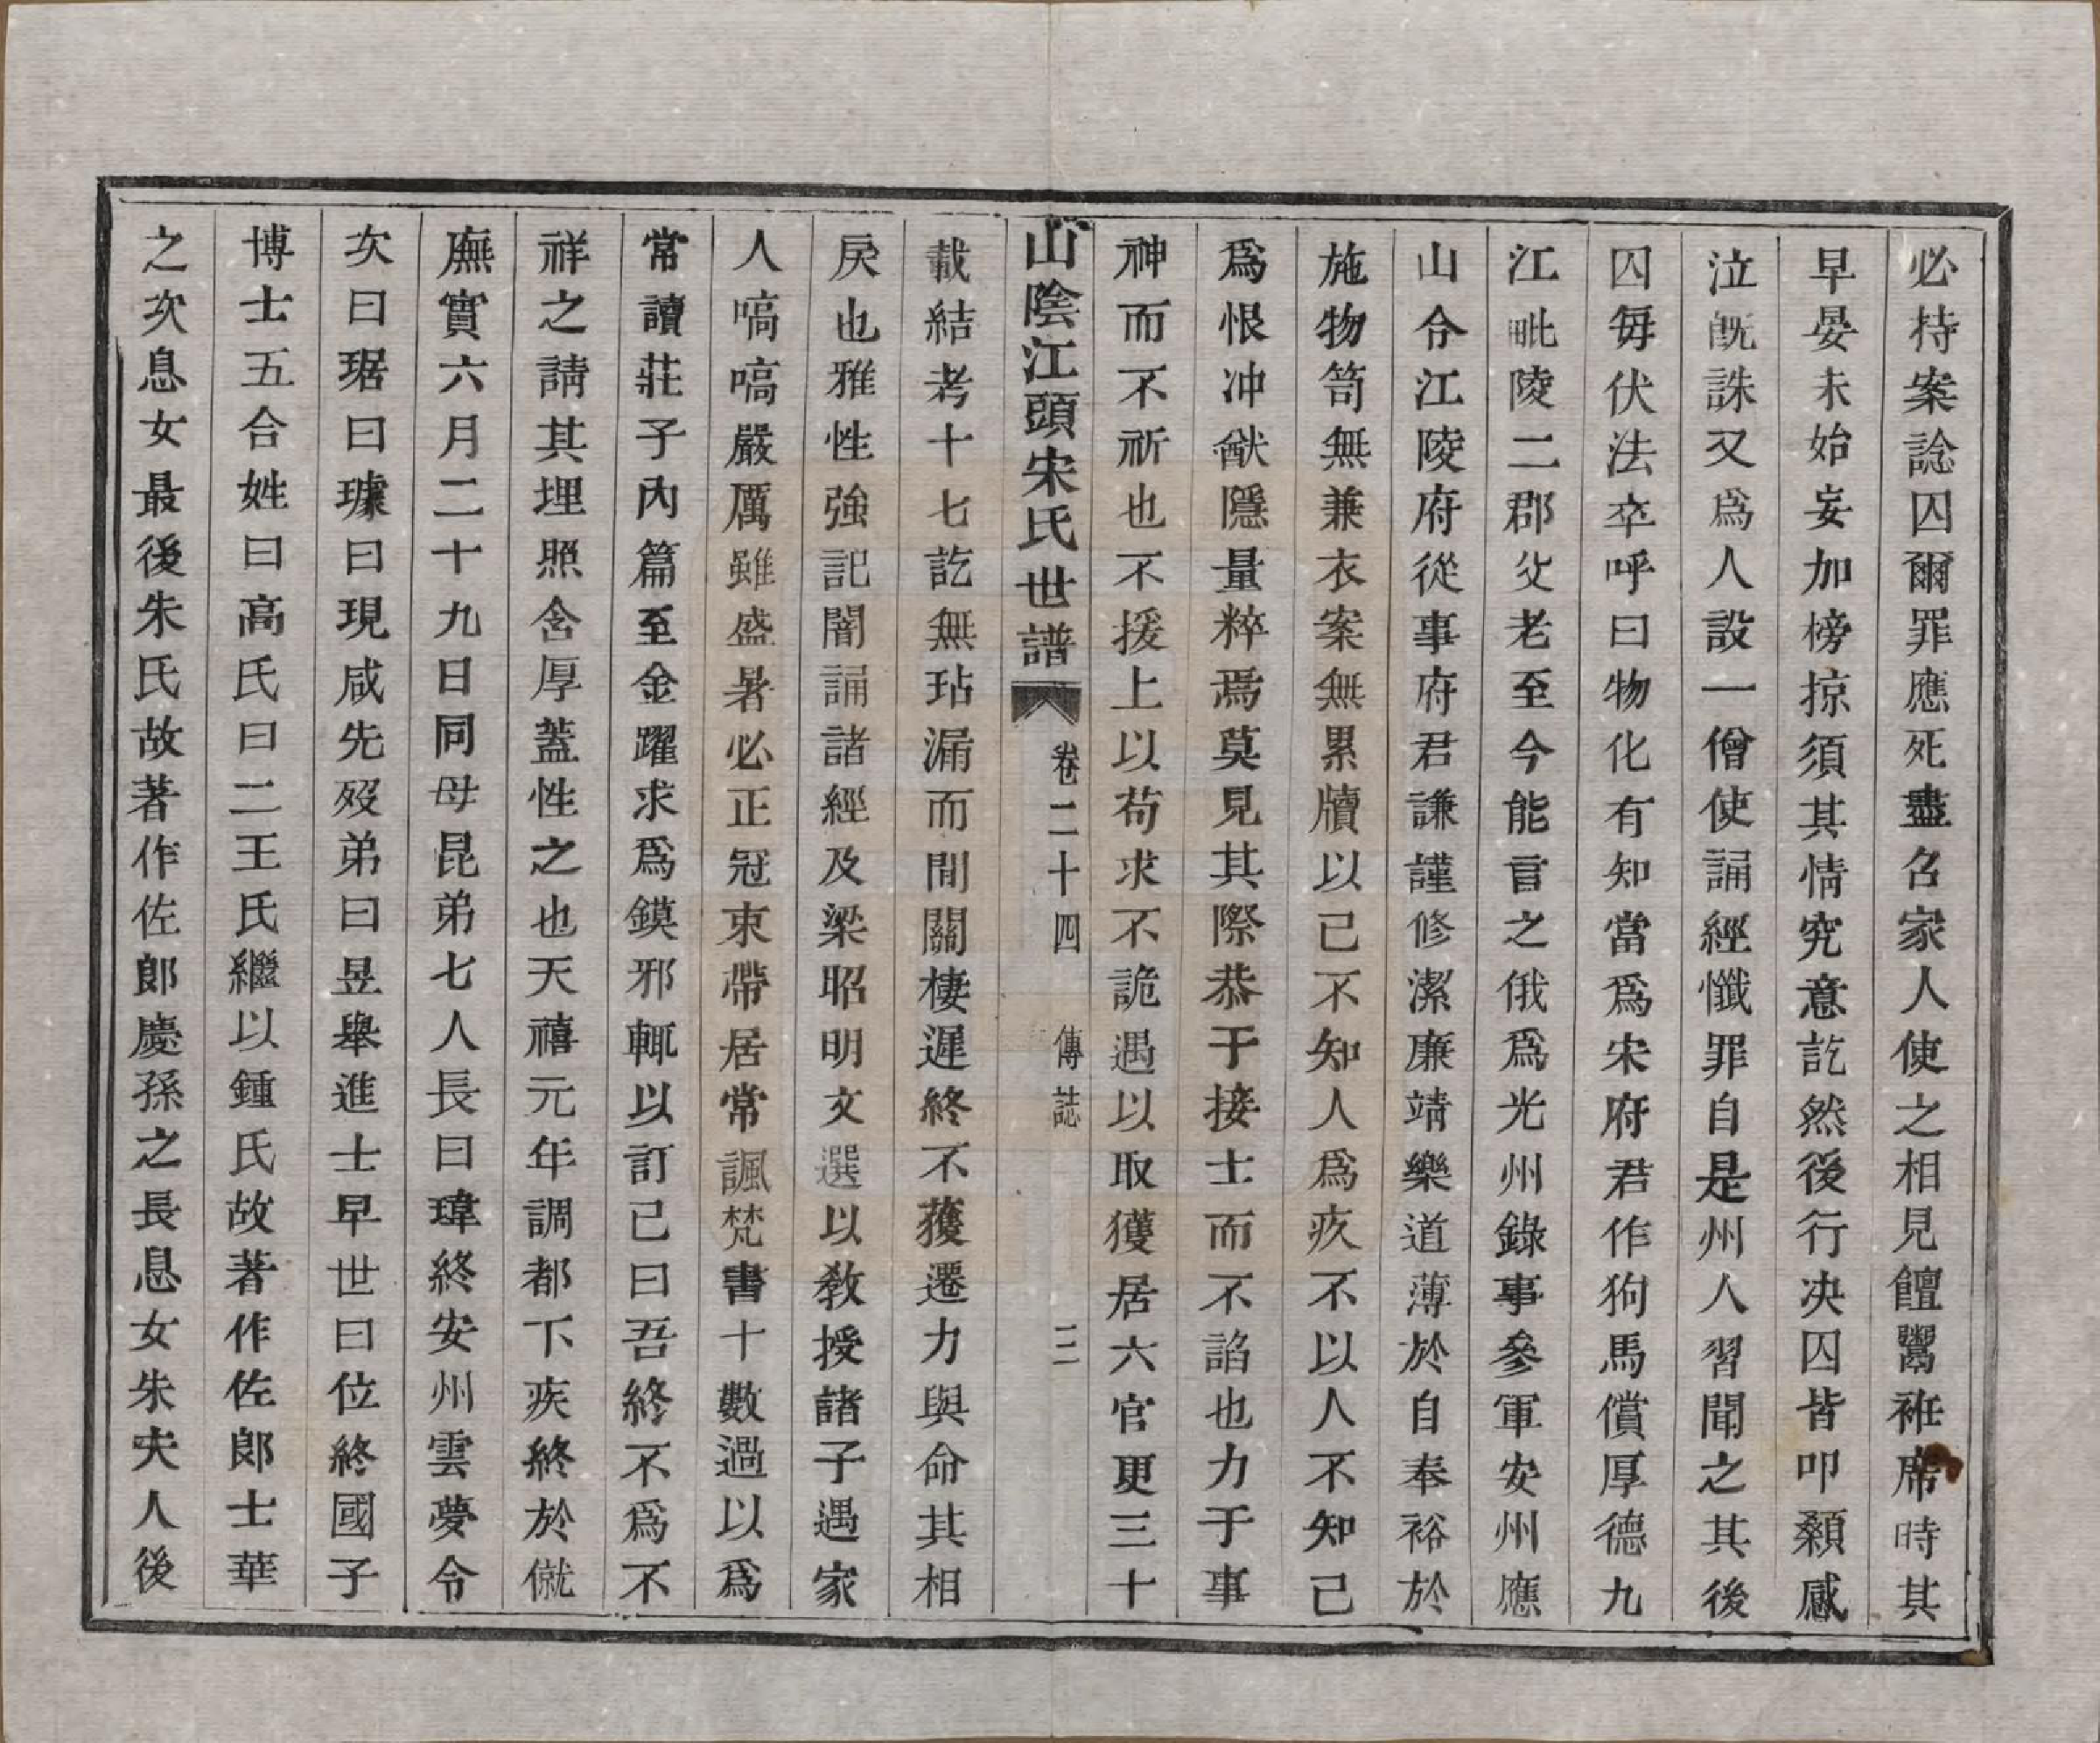 必持案諗囚爾罪應死盡名家人使之相見饘鬻袵席時其
早晏未始妄加榜掠須其情究意訖然後行决囚皆叩顙感
泣旣誅又爲人設一僧使誦經懺罪自是州人習聞之其後
囚每伏法卒呼曰物化有知當爲宋府君作狗馬償厚德九
江毗陵二郡父老至今能言之俄爲光州錄事參軍安州應
山令江陵府從事府君謙謹修潔廉靖樂道薄於自奉裕於
施物笥無兼衣案無累牘以已不知人爲疚不以人不知己
爲恨冲猷隱量粹焉莫見其際恭于接士而不諂也力于事
神而不祈也不援上以苟求不詭遇以取獲居六官更三十
山陰江頭宋氏世譜 卷二十四 傳誌 三
載結考十七訖無玷漏而閒關棲遲終不獲遷力與命其相
戾也雅性強記闇誦諸經及梁昭明文選以教授諸子遇家
人嗃嗃嚴厲雖盛暑必正冠束帶居常諷梵書十數過以爲
常讀莊子内篇至金躍求爲鏌邪輒以訂已曰吾終不爲不
祥之請其埋照含厚蓋性之也天禧元年調都下疾終於僦
廡實六月二十九日同母昆弟七人長曰瑋終安州雲夢令
次曰琚曰璩曰現咸先歿弟曰昱舉進士早世曰位終國子
博士五合姓曰高氏曰二王氏繼以鍾氏故著作佐郎士華
之次息女最後朱氏故著作佐郎慶孫之長息女朱夫人後